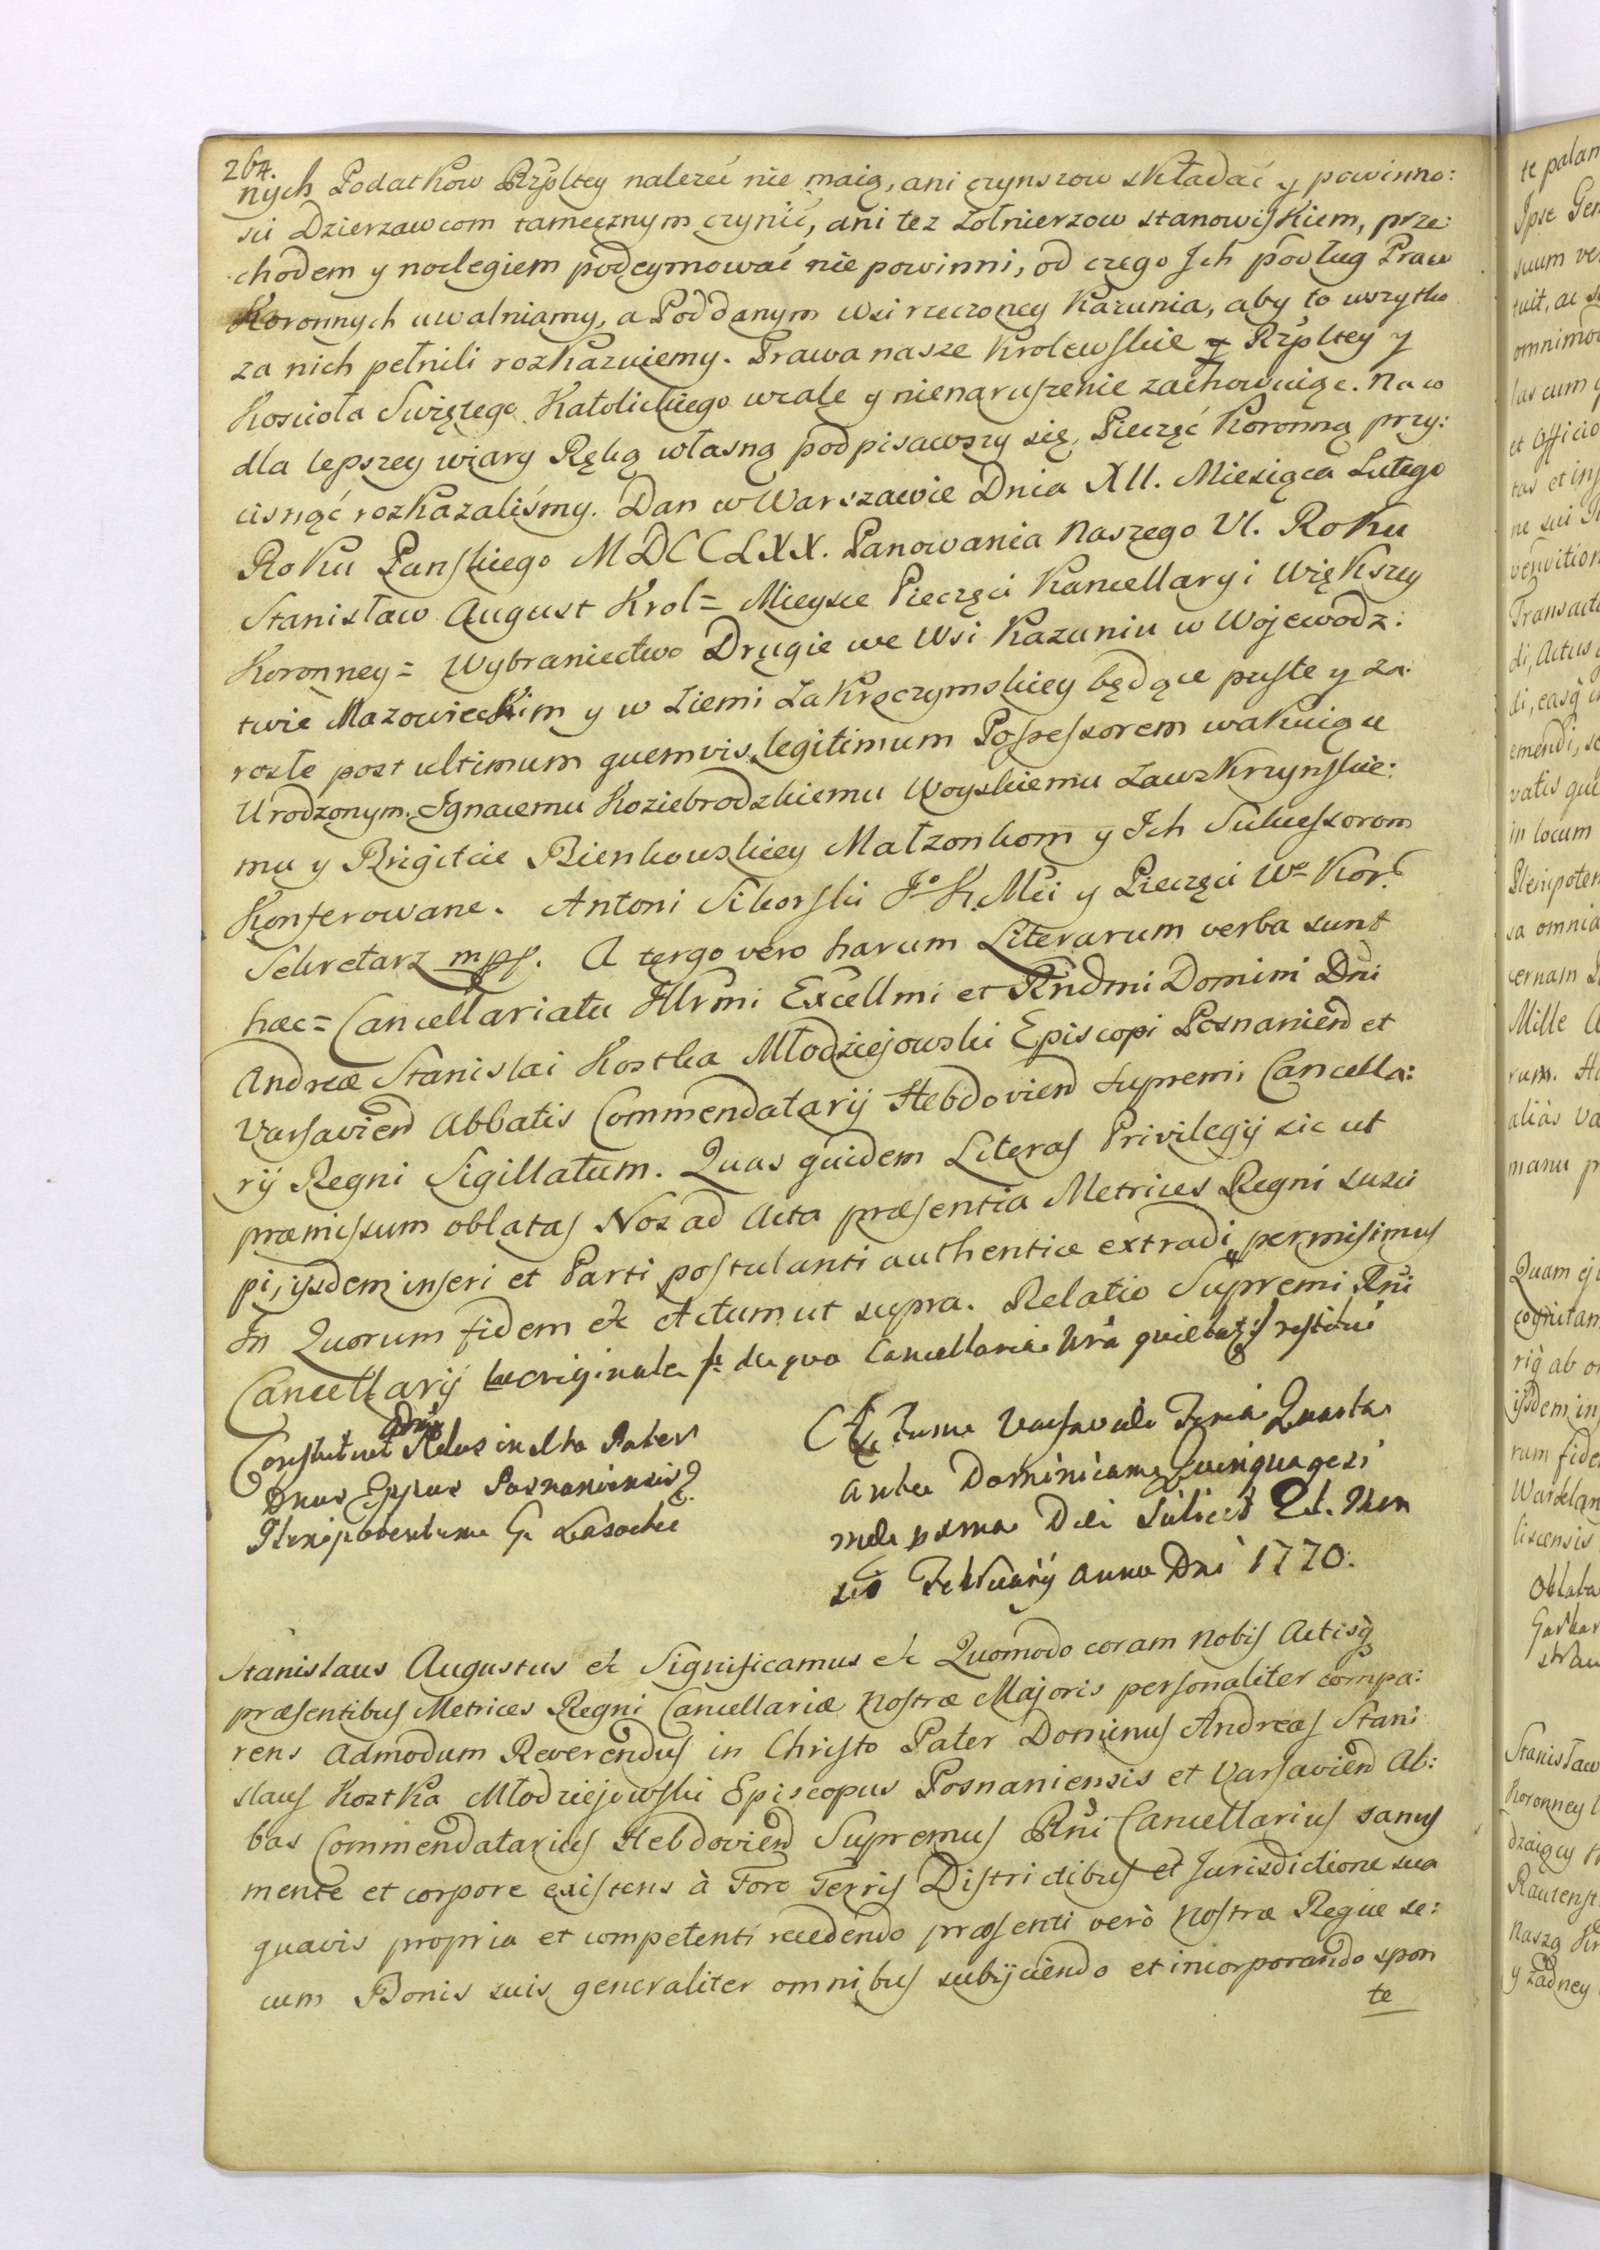 264.
nych Podatkow Rzpltey nalezeć nie maią, ani czynszow składać y powinno:
sci Dzierzawcom tamecznym czynić, ani tez Zołnierzow stanowiskiem, prze:
chodem y noclegiem podeymować nie powinni, od czego Ich podług Praw
Koronnych uwalniamy, a Poddanym wsi rzeczoney Kazunia, aby to wszytko
za nich pełnili rozkazuiemy. Prawa nasze Krolewskie y Rzpltey y
Koscioła Swiętego Katolickiego wcale y nienaruszenie zachowuiąc. Na co
dla lepszey wiary Ręką własną podpisawszy się, Pieczęć Koronną przy:
cisnąć rozkazaliśmy. Dan w Warszawie Dnia XII. Miesiąca Lutego
Roku Panskiego MDCCLXX. Panowania Naszego VI. Roku
Stanisław August Krol = Mieysce Pieczęci Kancellaryi Większey
Koronney = Wybraniectwo Drugie we Wsi Kazuniu w Wojewodz:
twie Mazowieckim y w Ziemi Zakroczymskiey będące puste y za:
rosłe post ultimum quemvis legitimum Possessorem wakuiące
Urodzonym Ignacemu Koziebrodzkiemu Woyskiemu Zawskrzynskie:
mu y Brigitcie Bienkowskiey Małzonkom y Ich Sukcessorom
Konferowane. Antoni Sikorski Jo K Mci y Pieczęci Wey Kor:
Sekretarz mpp. A tergo vero harum Literarum verba sunt
hæc = Cancellariatu Illrmi Excellmi et Rndmi Domini Dni
Andreæ Stanislai Kostka Młodziejowski Episcopi Posnanien et
Varsavien Abbatis Commendatarij Hebdovien Supremi Cancella:
rij Regni Sigillatum. Quas quidem Literas Privilegij sic ut
præmissum oblatas Nos ad Acta præsentia Metrices Regni susci
pi, ijsdem inseri et Parti postulanti authentice extradi permisimus
In Quorum fidem &c Actum ut supra. Relatio Supremi Rni
Cancellarij originale de quo Cancellaria restitui
Constitut in Pater
Dnus Eppus Posnaniensis
Plenipotentem G. Lasocki
Actum Varsaviæ Feria Quarta
ante Dominicam Quinquagesi
mæ Die 21. Men
sis Februarij Anno Dni 1770.
Stanislaus Augustus &c Significamus &c Quomodo coram Nobis Actisq
præsentibus Metrices Regni Cancellariæ Nostræ Majoris personaliter compa:
rens Admodum Reverendus in Christo Pater Dominus Andreas Stani
slaus Kostka Młodziejowski Episcopus Posnaniensis et Varsavien Ab:
bas Commendatarius Hebdovien Supremus Rni Cancellarius sanus
mente et corpore existens à Foro Terris Districtibus et Jurisdictione sua
quavis propria et competenti recedendo præsenti verò Nostræ Regiæ se:
cum Bonis suis generaliter omnibus subijciendo et incorporando spon
te